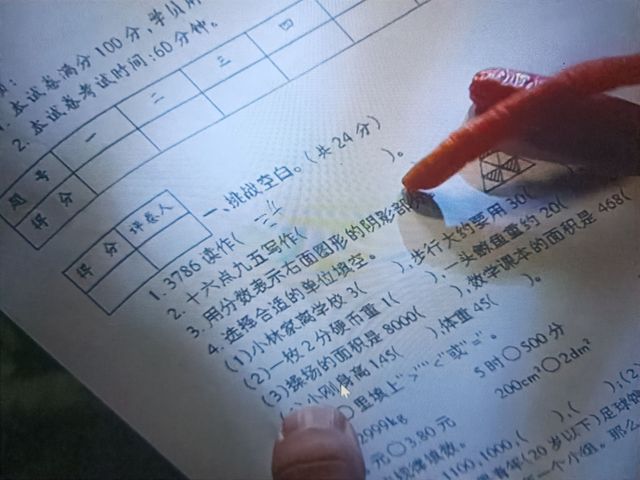 本试卷满分100分,
2. 本试卷考试时间:60分钟。
题号 一 二 三 四
得分
得分 评卷人
一、挑战空白。(共24分)
1. 3786读作( )。
2. 十六点九五写作(
3. 用分数表示右面图形的阴影部分
4. 选择合适的单位填空。
(1)小林家离学校3( ),步行大约要用30( )。
(2)一枚2分硬币重1( ),一头鲸鱼重约20(
(3)操场的面积是8000( ),数学课本的面积是468(
小刚身高145( ),体重45( )。
○里填上">""<"或"="。
2999kg 5时○500分
元○3.80元 200cm²○2dm²
1100,1000,( ),( );(2)
青年(20岁以下)足球
一个小组。那么